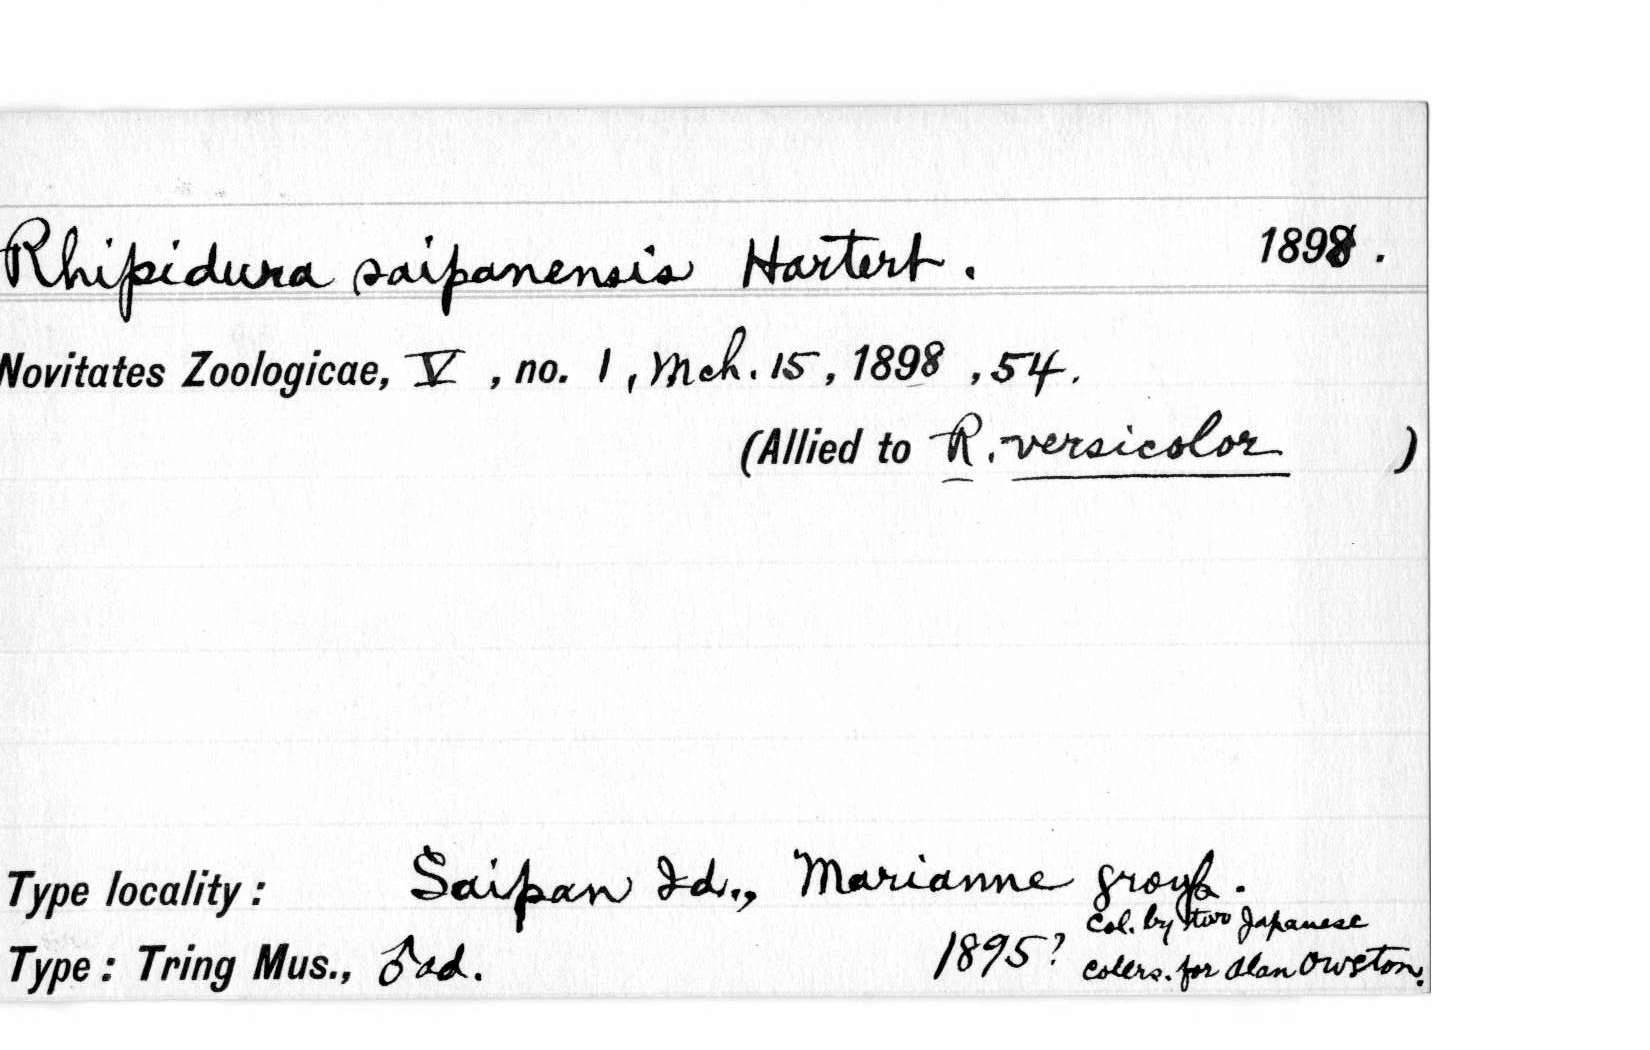 Rhipidura saipanensis Hartert. 1898.
Novitates Zoologicae, V, no. 1, Mch. 15, 1898, 54.
(Allied to R. versicolor )
Type locality: Saipan Id., Marianne group.
Type: Tring Mus., ♂ ad. 1895? Col. by two Japanese
collrs. for Alan Owston.